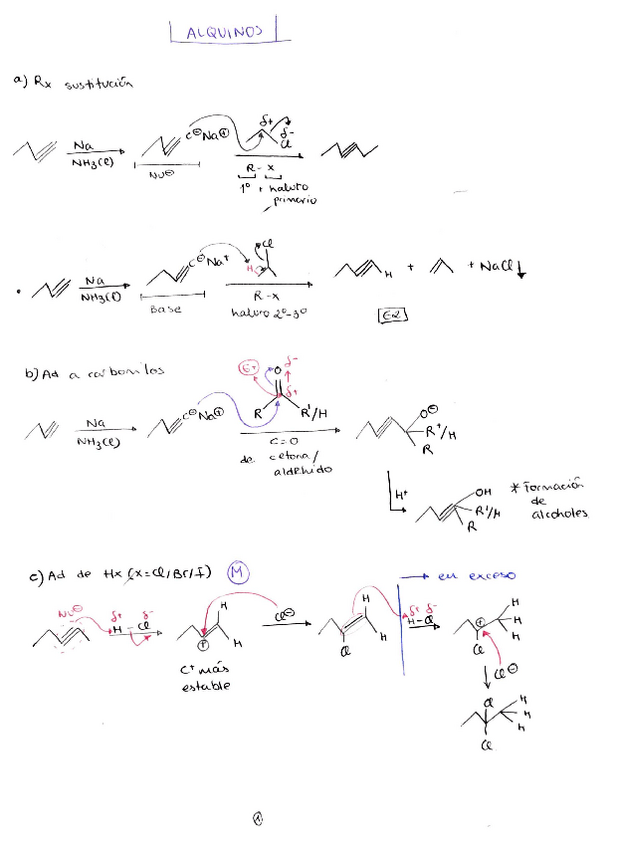 ALQUINOS
a) Rx sustitución
Na
NH3(l)
C⊖Na⊕
Nu⊖
δ+
δ-
Cl
R-X
1º + haluro
primario
Na
NH3(l)
Base
C⊖Na+
H
Cl
R-X
haluro 2º-3º
H
+
+ NaCl↓
E2
b) Ad a carbonilos
Na
NH3(l)
C⊖Na⊕
E+
O
δ-
δ+
R
R'/H
C=O
de cetona/
aldehido
O⊖
R'/H
R
H+
OH
R'/H
R
* Formación
de
alcoholes
c) Ad de HX (X=Cl/Br/I) M
Nu⊖
δ+ δ-
H-Cl
H
H
⊕
C+ más
estable
Cl⊖
H
H
Cl
→ en exceso
δ+ δ-
H-Cl
⊕
H
H
H
Cl
Cl⊖
Cl
H
H
H
Cl
1